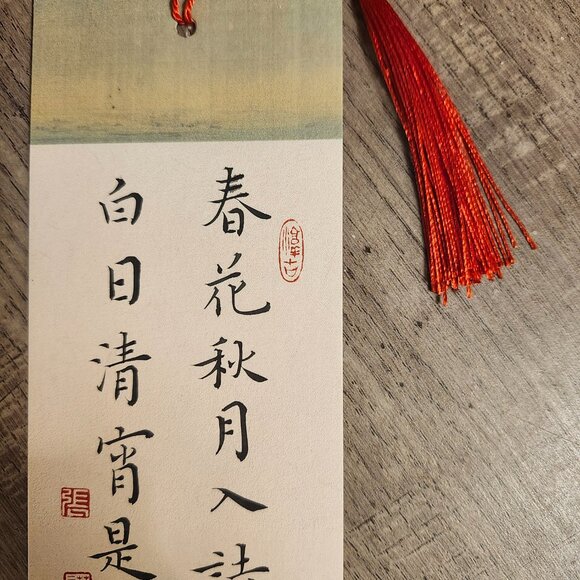 春花秋月入詩
白日清宵是
張